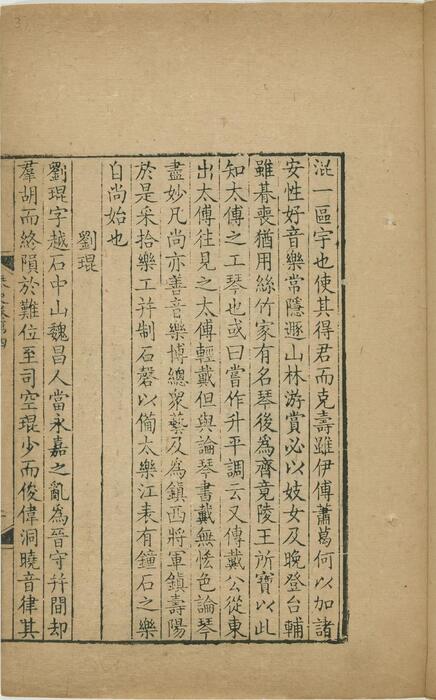 混一區宇也使其得君而克壽雖伊傅蕭葛何以加諸
安性好音樂常隱遯山林游賞必以妓女及晚登台輔
雖朞喪猶用絲竹家有名琴後為齊竟陵王所寶以此
知太傅之工琴也或曰嘗作升平調云又傳戴公從東
出太傅往見之太傅輕戴但與論琴書戴無恡色論琴
盡妙凡尚亦善音樂博總衆藝及為鎮西將軍鎮壽陽
於是采拾樂工幷制石磬以備太樂江表有鐘石之樂
自尚始也
劉琨
劉琨字越石中山魏昌人當永嘉之亂為晉守幷間却
羣胡而終隕於難位至司空琨少而俊偉洞曉音律其